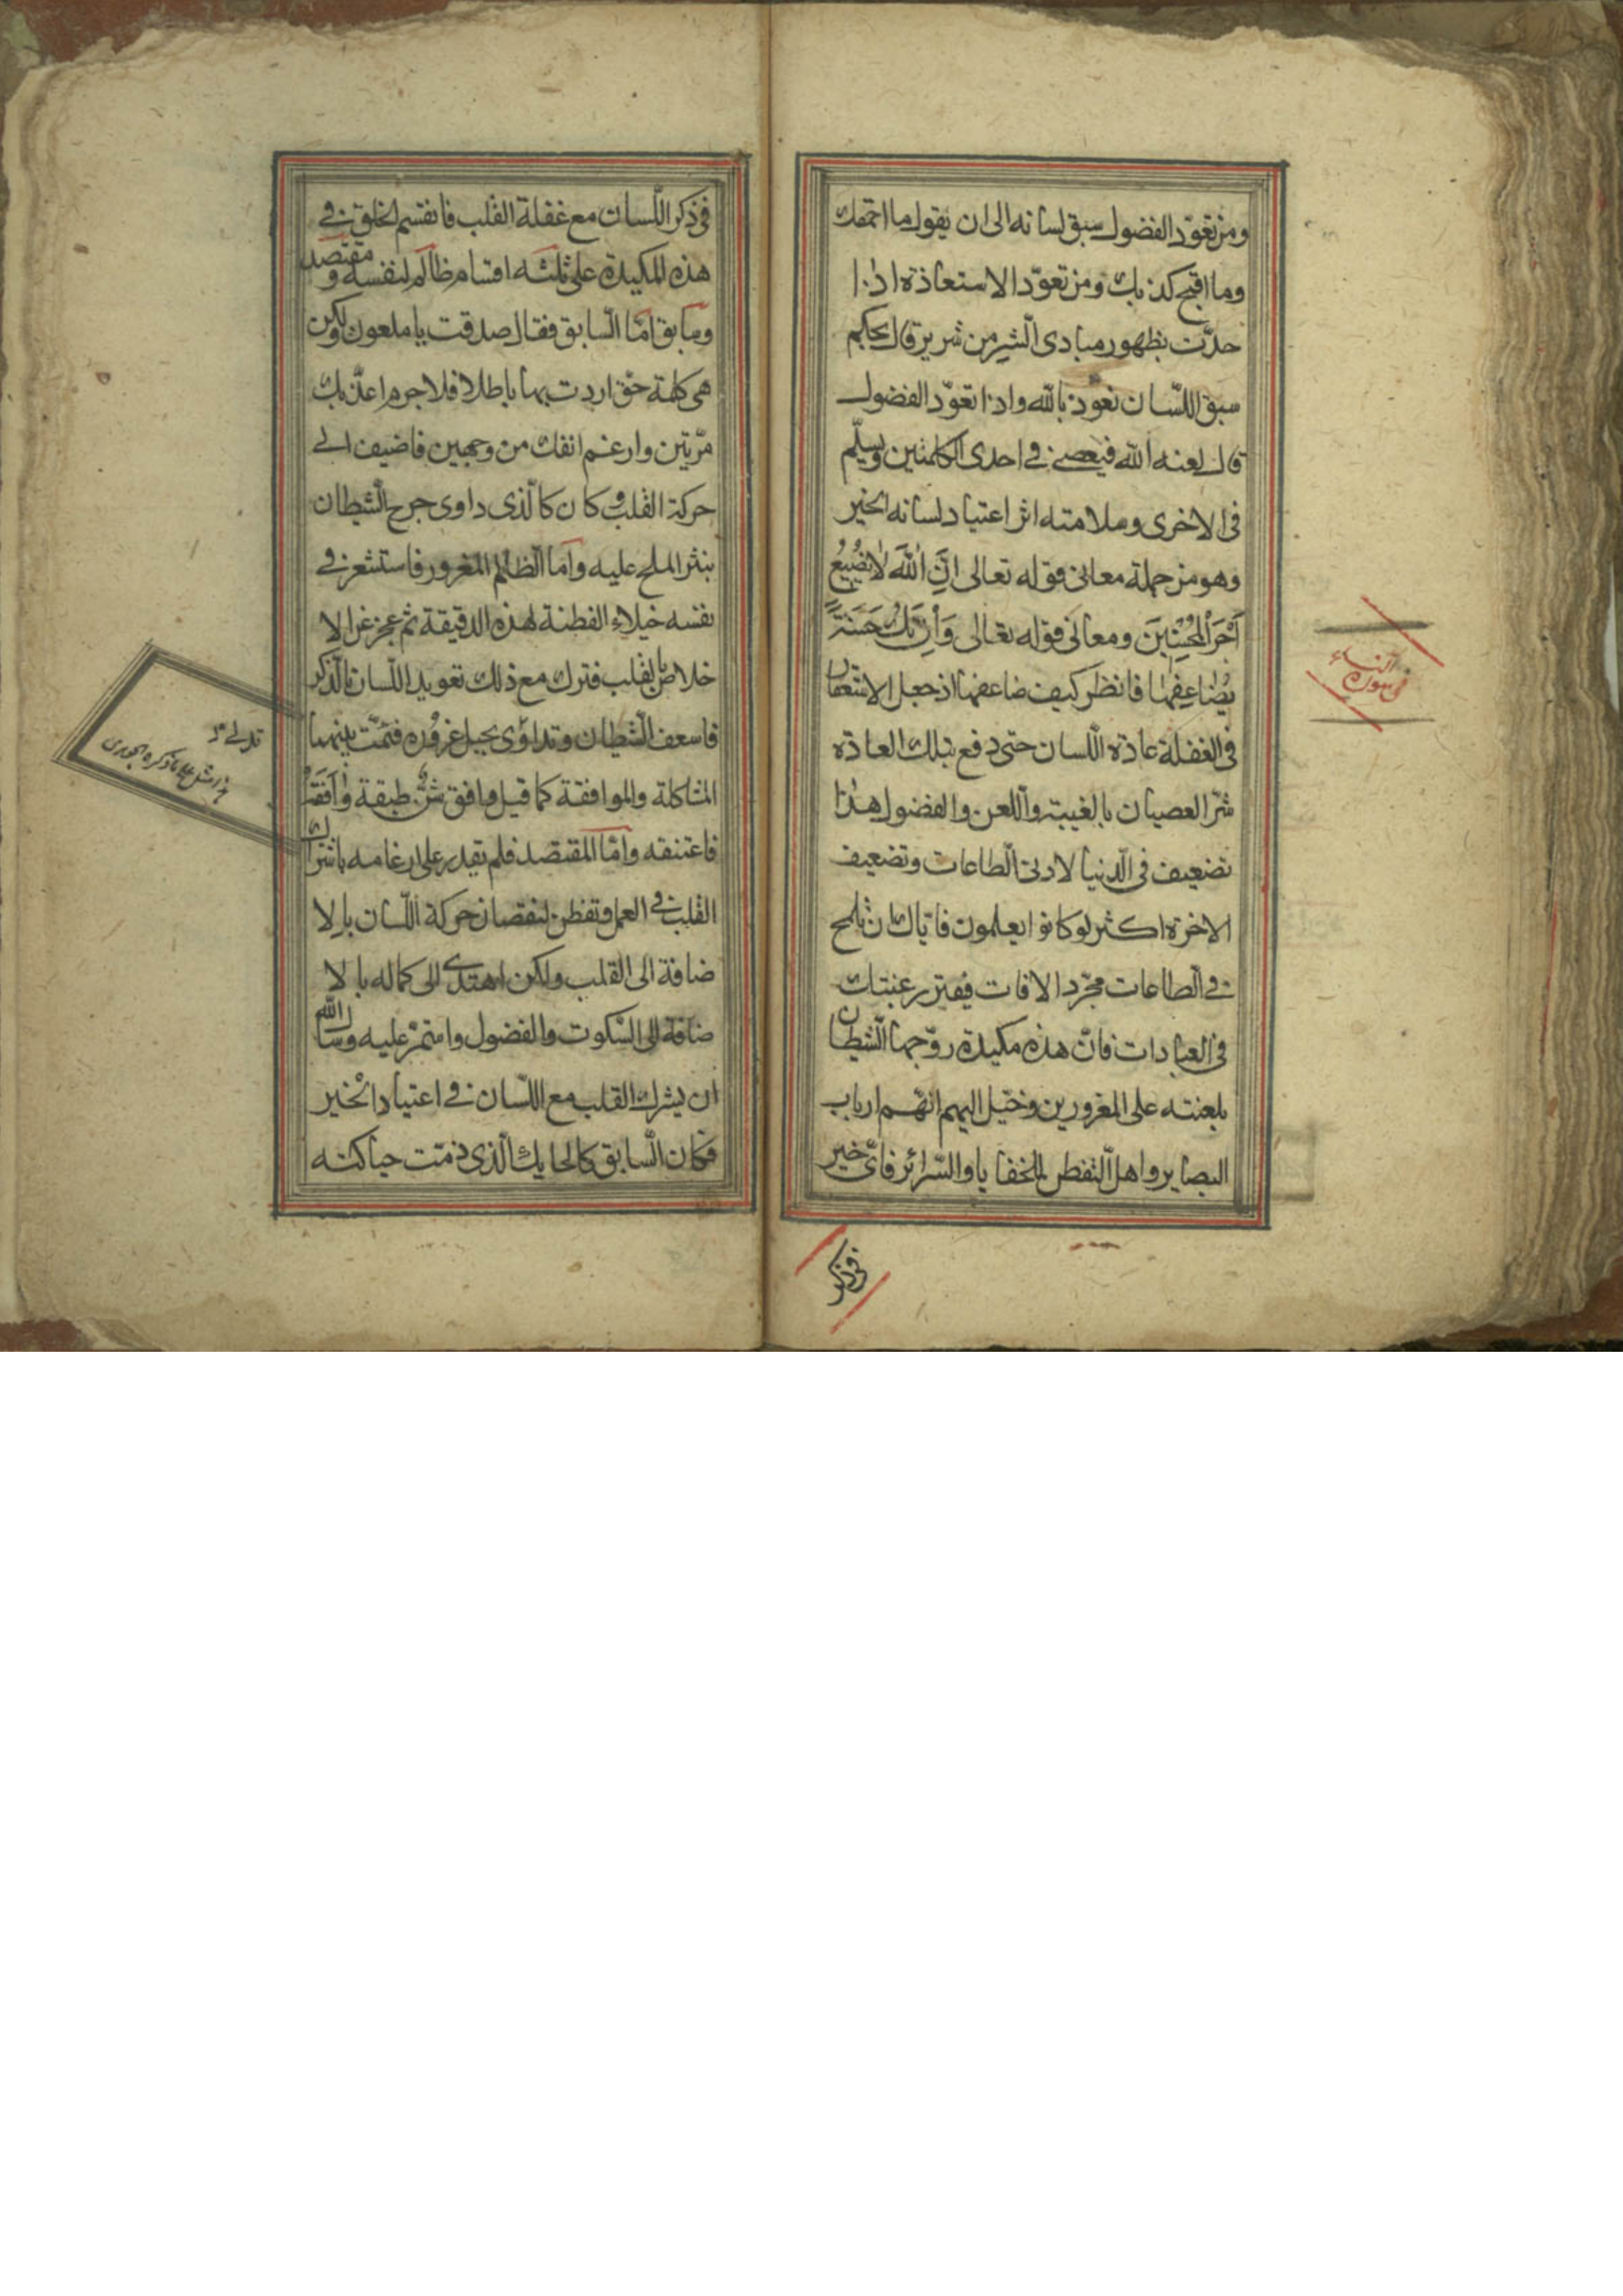 ومن تعوّد الفضول سبق لسانه الى ان يقول ما احمقك
وما اقبح كذبك ومن تعوّد الاستعاذة اذا
حدّث بظهور مبادى الشر من شرير قال بحكم
سبق اللّسان نعوذ بالله واذا تعوّد الفضول
قال لعنه الله فيعصى فى احدى الكلمتين ويسلّم
فى الاخرى وسلامته اثر اعتياد لسانه الخير
وهو من جملة معانى قوله تعالى اِنَّ اللّٰهَ لَا يُضِيعُ
اَجْرَ الْمُحْسِنِينَ ومعانى قوله تعالى وَاِنْ تَكُ حَسَنَةً
يُضَاعِفْهَا فانظر كيف ضاعفها اذ جعل الاستغفار
فى الغفلة عادة اللّسان حتى دفع بتلك العادة
شرّ العصيان بالغيبة واللّعن والفضول هذا
تضعيف فى الدّنيا لادنى الطّاعات وتضعيف
الاخرة اكثر لو كانوا يعلمون فاياك ان تلمح
فى الطّاعات مجرّد الافات فيفتر رغبتك
فى العبادات فانّ هذه مكيدة روّجها الشّيطان
بلعنته على المغرورين وخيّل اليهم انّهم ارباب
البصاير واهل التّفطن للخفايا والسّرائر فاىّ خير
فى سورة النساء
فى ذكر
فى ذكر اللّسان مع غفلة القلب فانقسم الخلق فى
هذه المكيدة على ثلثه اقسام ظالم لنفسه و مقتصد
وسابق امّا السّابق فقال صدقت يا ملعون ولكن
هى كلمة حق اردت بها باطلا فلا جرم اعذّبك
مرّتين وارغم انفك من وجهين فاضيف الى
حركة القلب و كان كالّذى داوى جرح الشّيطان
بنثر الملح عليه وامّا الظّالم المغرور فاستشعر فى
نفسه خيلاء الفطنة لهذه الدقيقة ثم عجز عن الا
خلاص بالقلب فترك مع ذلك تعويد اللّسان بالذّكر
فاسعف الشّيطان وتداوى بحبل غروره فتمّت بينهما
المشاكلة والموافقة كما قيل وافق شنّ طبقة وافقه
فاعتنقه وامّا المقتصد فلم يقدر على ارغامه باشراك
القلب فى العمل وتفطن لنقصان حركة اللّسان بالا
ضافة الى القلب ولكن اهتدى الى كماله بالا
ضافة الى السّكوت والفضول واستمرّ عليه وسأل الله
ان يشرك القلب مع اللّسان فى اعتياد الخير
فكان السّابق كالحايك الّذى ذمّت حياكته